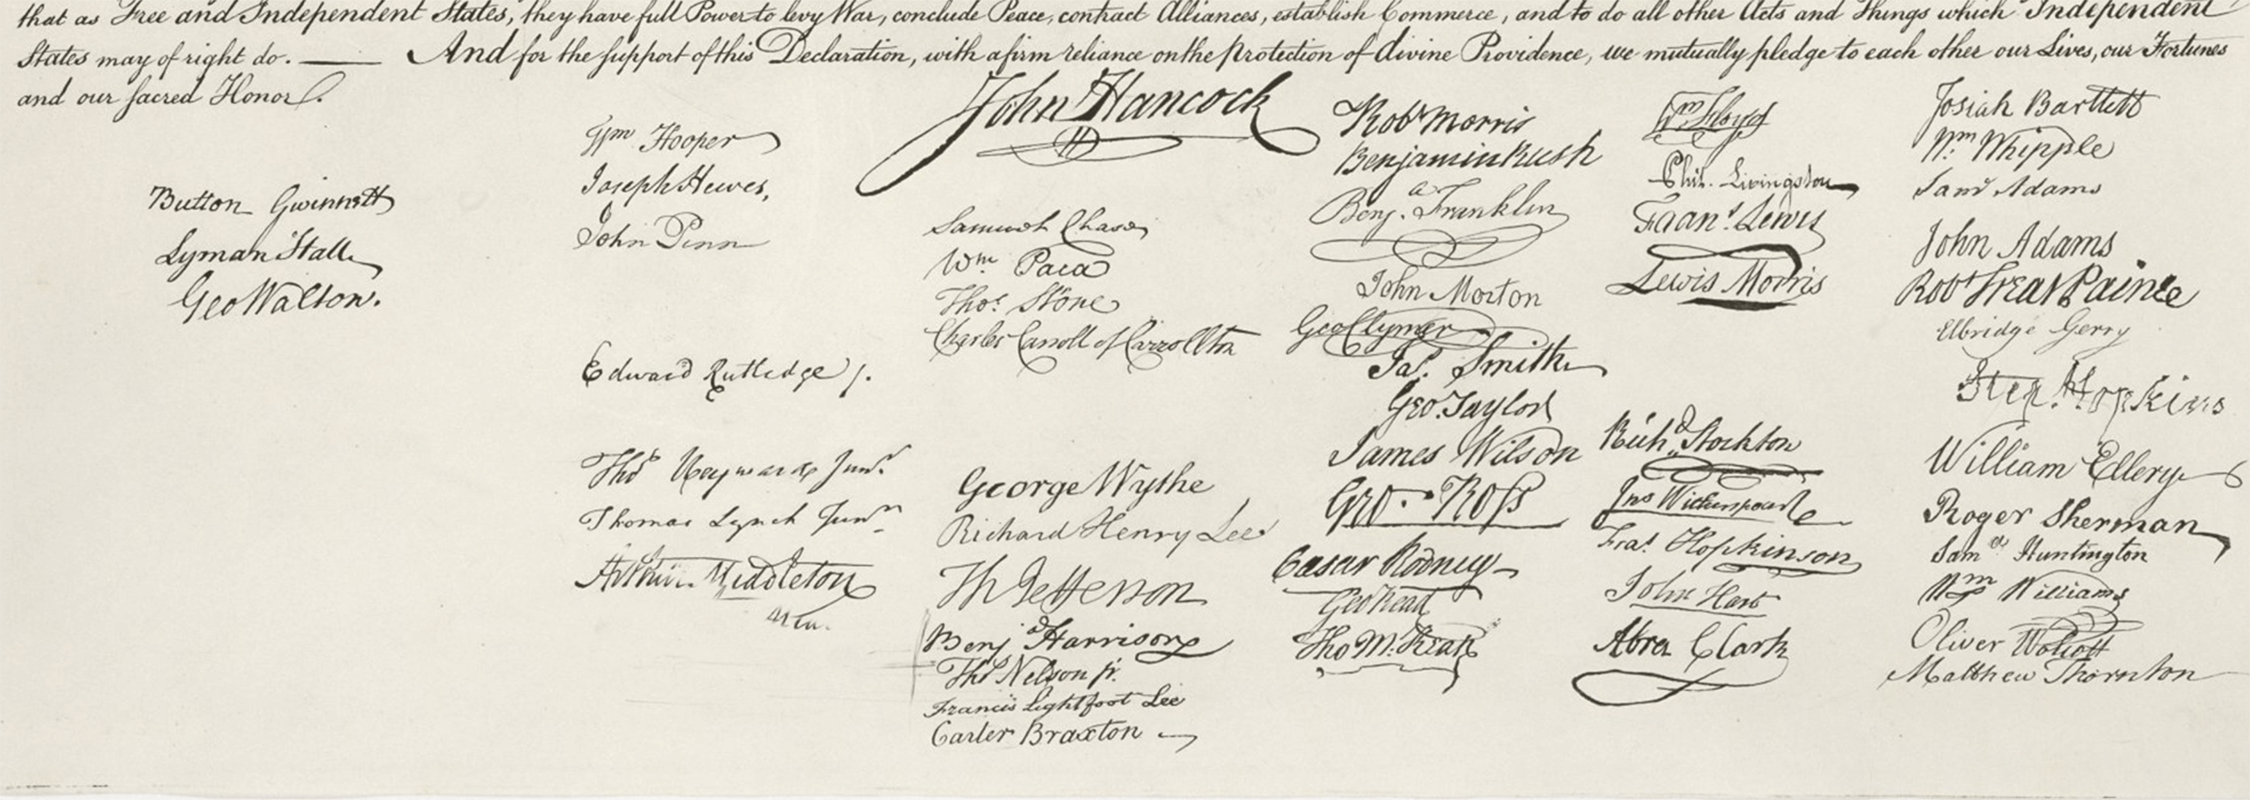 that as Free and Independent States, they have full Power to levy War, conclude Peace, contract Alliances, establish Commerce, and to do all other Acts and Things which Independent
States may of right do. — And for the support of this Declaration, with a firm reliance on the protection of divine Providence, we mutually pledge to each other our Lives, our Fortunes
and our sacred Honor.
Button Gwinnett
Lyman Hall
Geo Walton.
Wm Hooper
Joseph Hewes,
John Penn
Edward Rutledge /.
Thos Heyward Junr.
Thomas Lynch Junr.
Arthur Middleton
John Hancock
Samuel Chase
Wm. Paca
Thos. Stone
Charles Carroll of Carrollton
George Wythe
Richard Henry Lee
Th Jefferson
Benja Harrison
Thos Nelson jr.
Francis Lightfoot Lee
Carter Braxton
Robt Morris
Benjamin Rush
Benja. Franklin
John Morton
Geo Clymer
Jas. Smith
Geo. Taylor
James Wilson
Geo. Ross
Caesar Rodney
Geo Read
Tho M:Kean
Wm Floyd
Phil. Livingston
Frans. Lewis
Lewis Morris
Richd. Stockton
Jno Witherspoon
Fras. Hopkinson
John Hart
Abra Clark
Josiah Bartlett
Wm. Whipple
Saml Adams
John Adams
Robt Treat Paine
Elbridge Gerry
Step. Hopkins
William Ellery
Roger Sherman
Samel Huntington
Wm Williams
Oliver Wolcott
Matthew Thornton